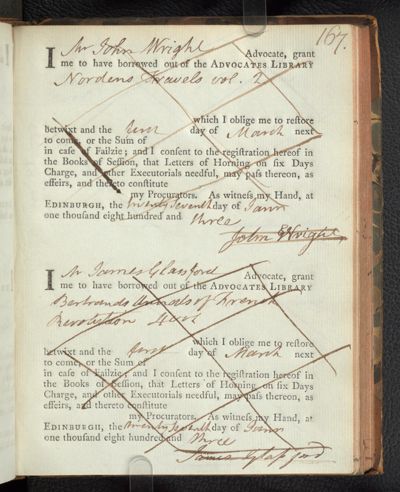 167.
I Mr John Wright Advocate, grant
me to have borrowed out of the ADVOCATES LIBRARY
Nordens Travels vol. 2
which I oblige me to restore
betwixt and the first day of March next
to come, or the Sum of
in case of Failzie; and I consent to the registration hereof in
the Books of Session, that Letters of Horning on six Days
Charge, and other Executorials needful, may pass thereon, as
effeirs, and thereto constitute
my Procurators. As witness my Hand, at
EDINBURGH, the twenty seventh day of Jany
one thousand eight hundred and three
John Wright
I Mr James Glassford Advocate, grant
me to have borrowed out of the ADVOCATES LIBRARY
Bertrands Annals of French
Revolution 4 vols
which I oblige me to restore
betwixt and the first day of March next
to come, or the Sum of
in case of Failzie; and I consent to the registration hereof in
the Books of Session, that Letters of Horning on six Days
Charge, and other Executorials needful, may pass thereon, as
effeirs, and thereto constitute
my Procurators. As witness my Hand, at
EDINBURGH, the twenty seventh day of Jany
one thousand eight hundred and three
James Glassford